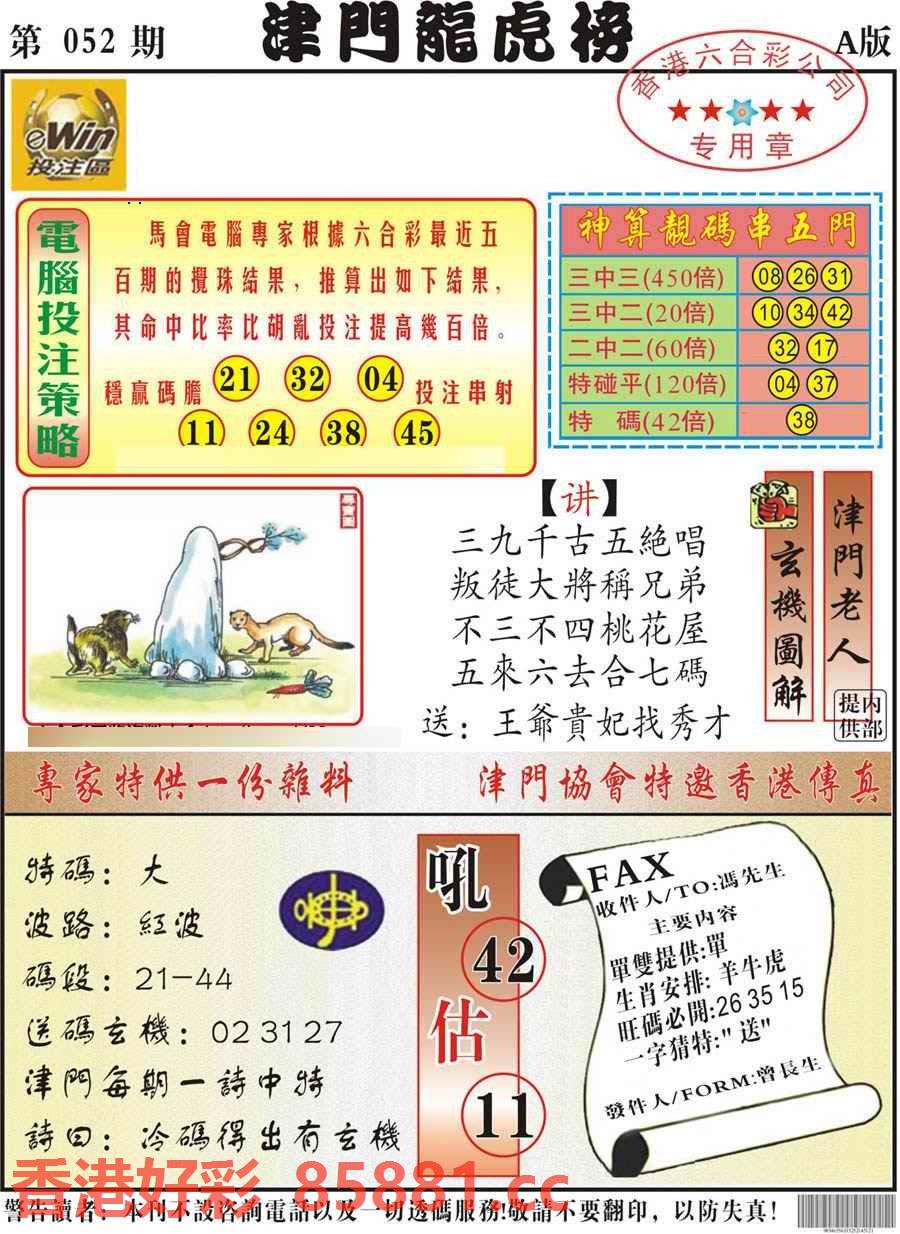 第 052 期
津門龍虎榜
A版
香港六合彩公司
专用章
eWin
投注區
電腦投注策略
馬會電腦專家根據六合彩最近五
百期的攪珠結果，推算出如下結果，
其命中比率比胡亂投注提高幾百倍。
穩贏碼膽 21 32 04 投注串射
11 24 38 45
神算靚碼串五門
三中三(450倍) 08 26 31
三中二(20倍) 10 34 42
二中二(60倍) 32 17
特碰平(120倍) 04 37
特 碼(42倍) 38
【讲】
三九千古五絕唱
叛徒大將稱兄弟
不三不四桃花屋
五來六去合七碼
送：王爺貴妃找秀才
玄機圖解
津門老人
内部提供
專家特供一份雜料
津門協會特邀香港傳真
特碼：大
波路：紅波
碼段：21—44
送碼玄機：02 31 27
津門每期一詩中特
詩曰：冷碼得出有玄機
吼
42
估
11
FAX
收件人/TO:馮先生
主要内容
單雙提供:單
生肖安排: 羊牛虎
旺碼必開:26 35 15
一字猜特:"送"
發件人/FORM:曾長生
香港好彩 85881.cc
警告讀者：本刊不設咨詢電話以及一切透碼服務!敬請不要翻印，以防失真！